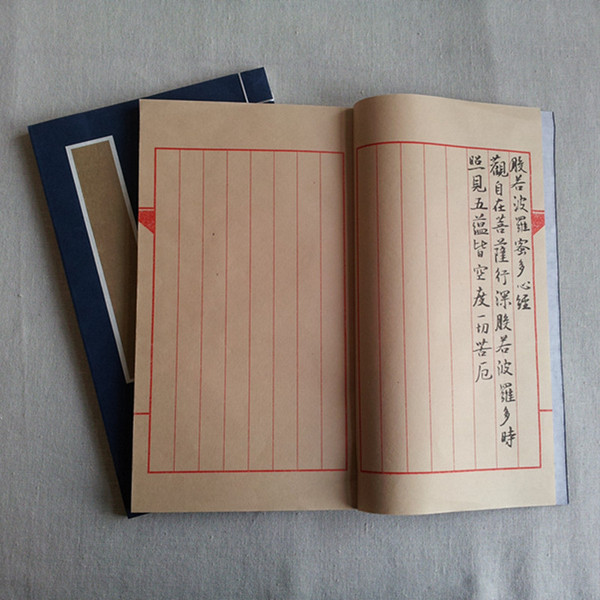 般若波羅蜜多心經
觀自在菩薩行深般若波羅多時
照見五蘊皆空度一切苦厄